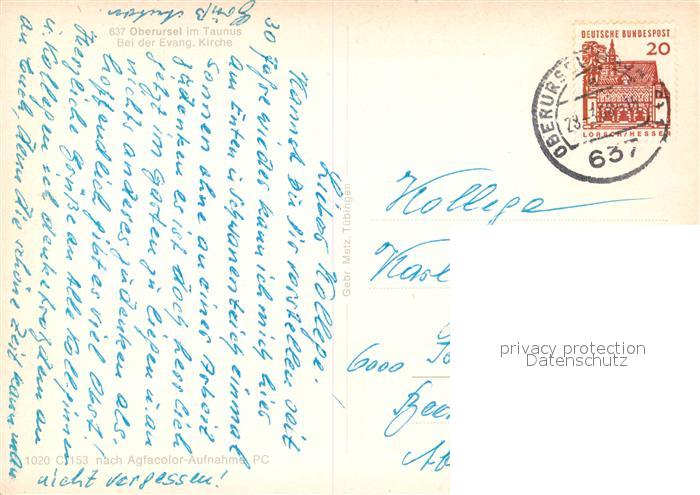 637 Oberursel im Taunus
Bei der Evang. Kirche
DEUTSCHE BUNDESPOST
20
LORSCH/HESSEN
OBERURSEL
637
Lieber Kollege.
Kannst Du Dir vorstellen seit
30 Jahre wieder kann ich mich hier
am Enten u Schwanenteich einmal
sonnen ohne an einer Arbeit
zu denken es ist doch herrlich
jetzt im Garten zu liegen u. an
nichts anderes zu denken als
hoffendlich gibt es viel Obst!
Herzliche Grüße an alle Koll.innen
u. Kollegen ich denke trotzdem an
an Euch, denn die schöne Zeit kann man
nicht vergessen!
Gruß
Gebr. Metz, Tübingen
Kollege
Karl
6000
privacy protection
Datenschutz
1020 C 153 nach Agfacolor-Aufnahme PC